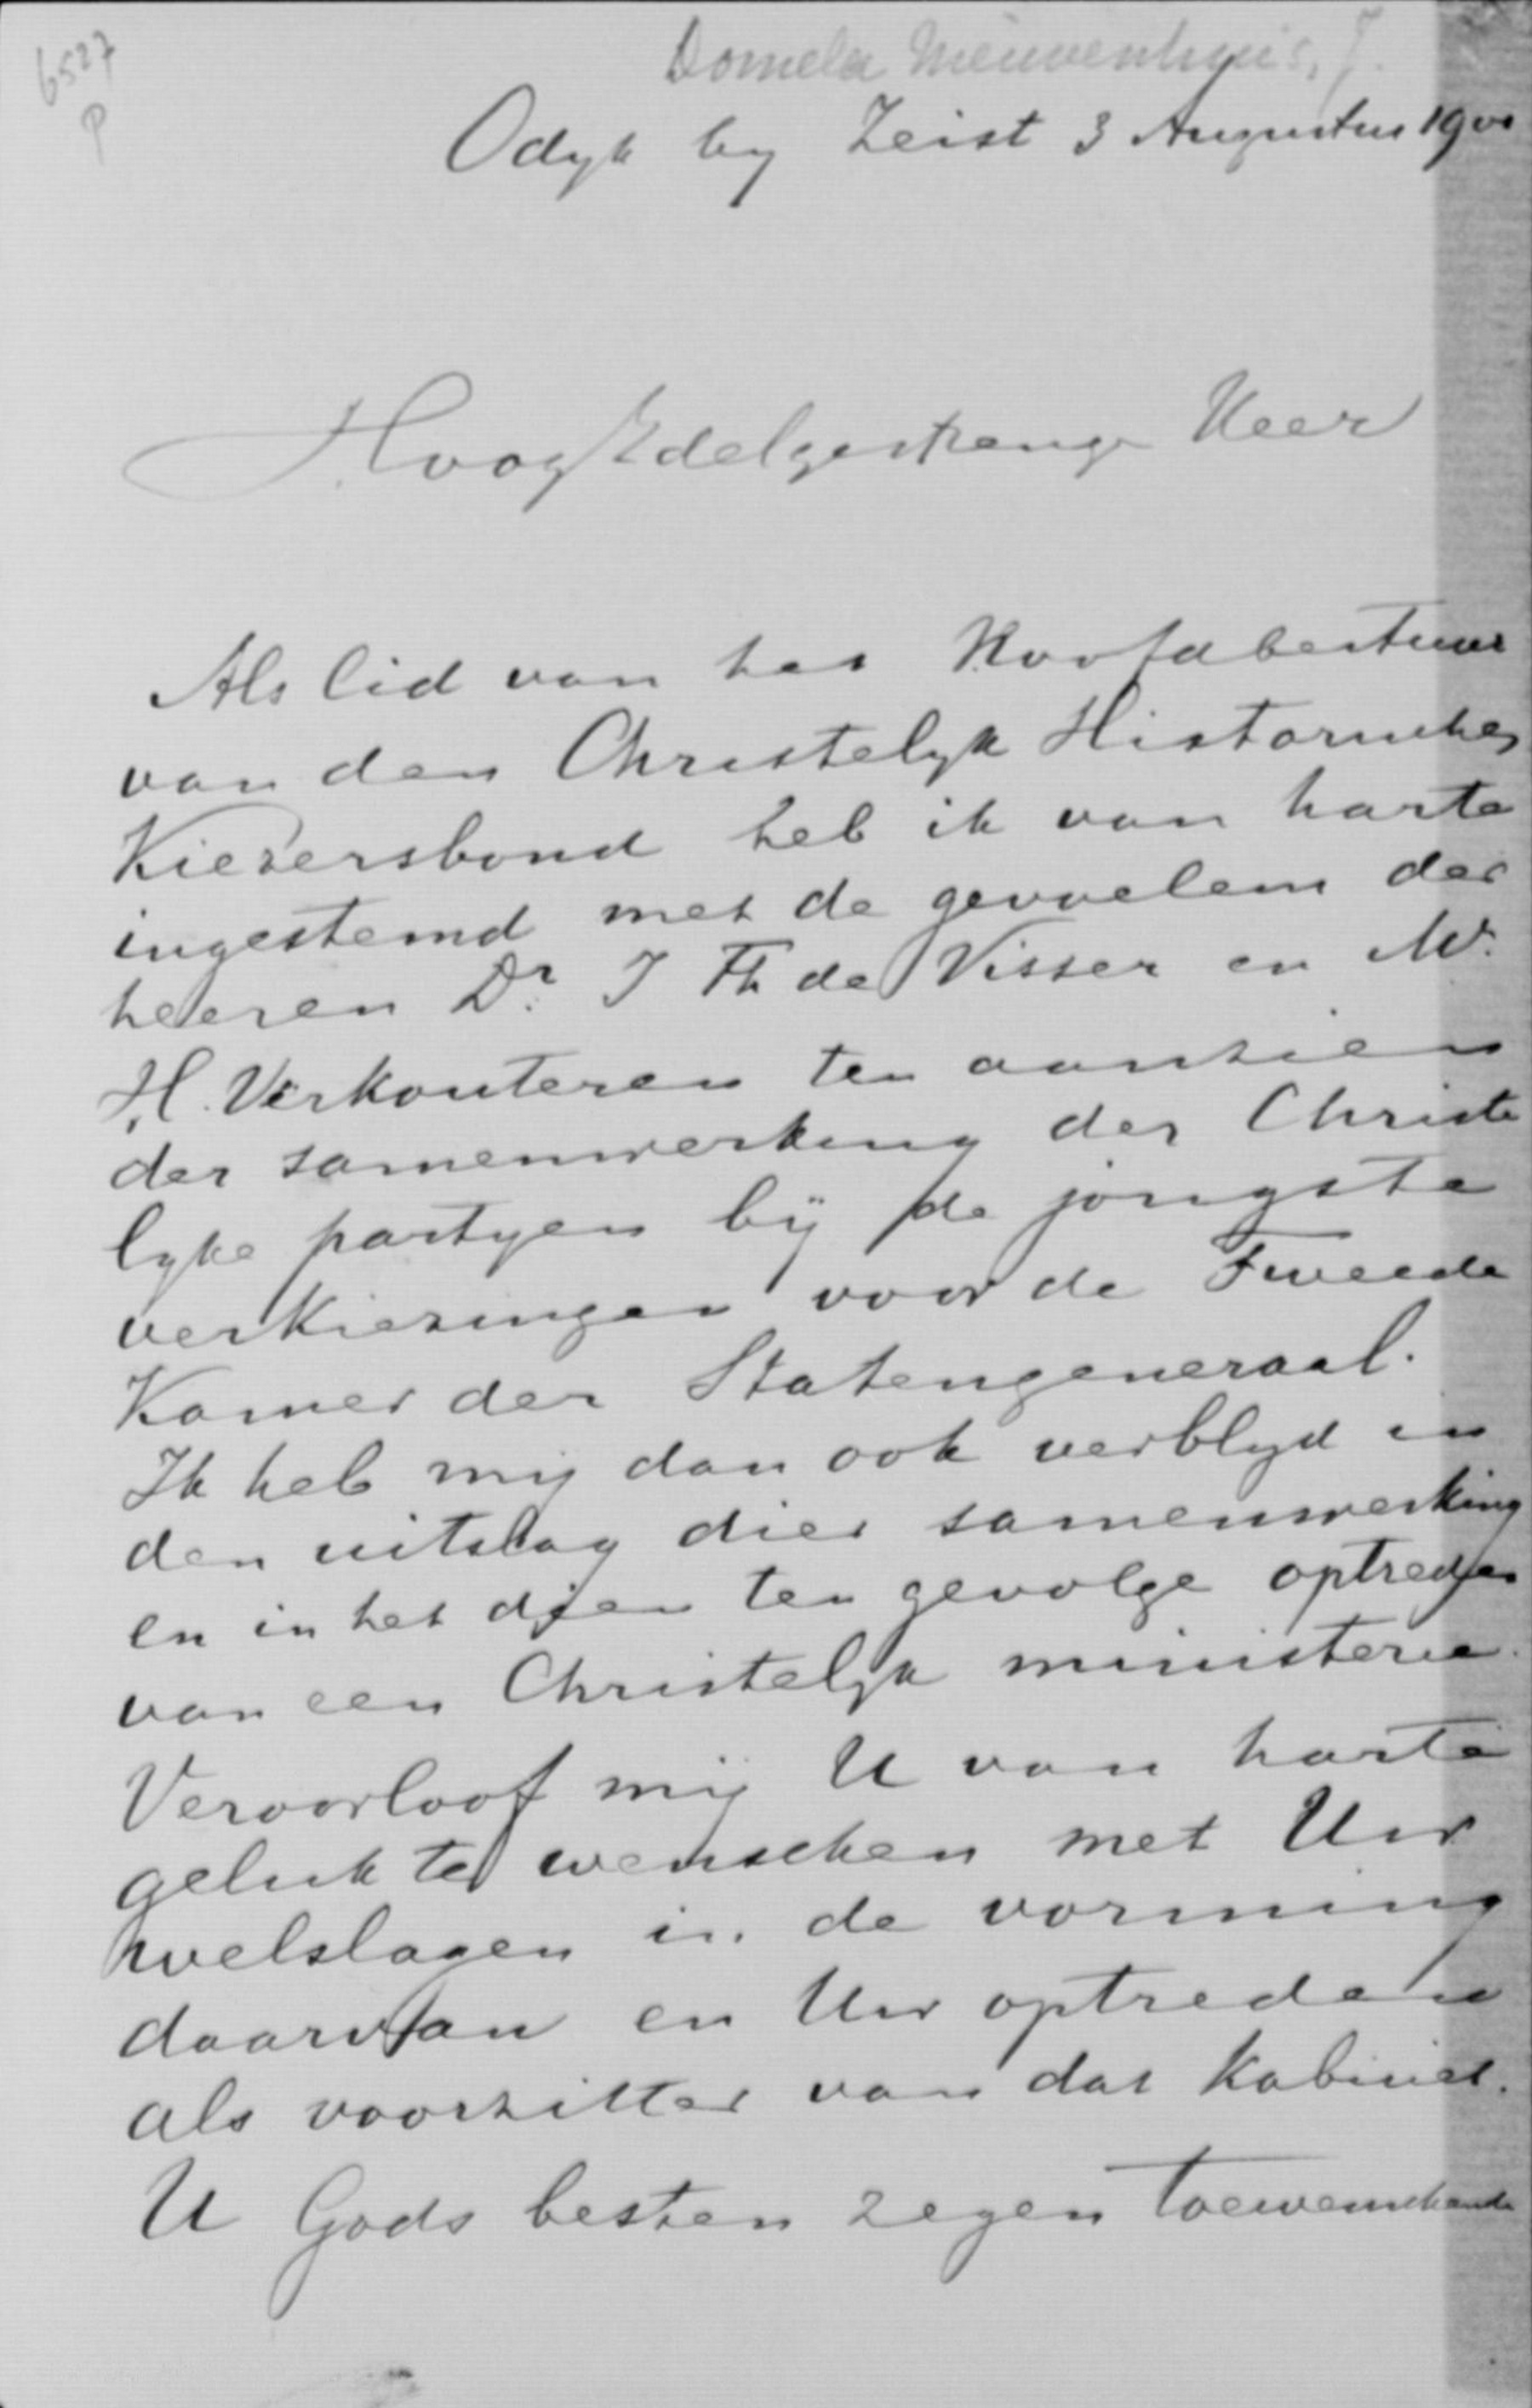 6527
P
Domela Nieuwenhuis, J.
Odyk by Zeist 3 Augustus 1901
HoogEdelgestrenge Heer
Als lid van het Hoofdbestuur
van den Christelyk Historischen
Kiezersbond heb ik van harte
ingestemd met de gevoelens der
heeren Dr. J Th de Visser en Mr.
H. Verkouteren ten aanzien
der samenwerking der Christe
lyke partyen bÿ de jongste
verkiezingen voor de Tweede
Kamer der Statengeneraal.
Ik heb mij dan ook verblyd in
den uitslag dier samenwerking
en in het dien ten gevolge optreden
van een Christelyk ministerie.
Veroorloof mij U van harte
geluk te wenschen met Uw
welslagen in de vorming
daarvan en Uw optreden
als voorzitter van dat Kabinet.
U Gods besten zegen toewenschende